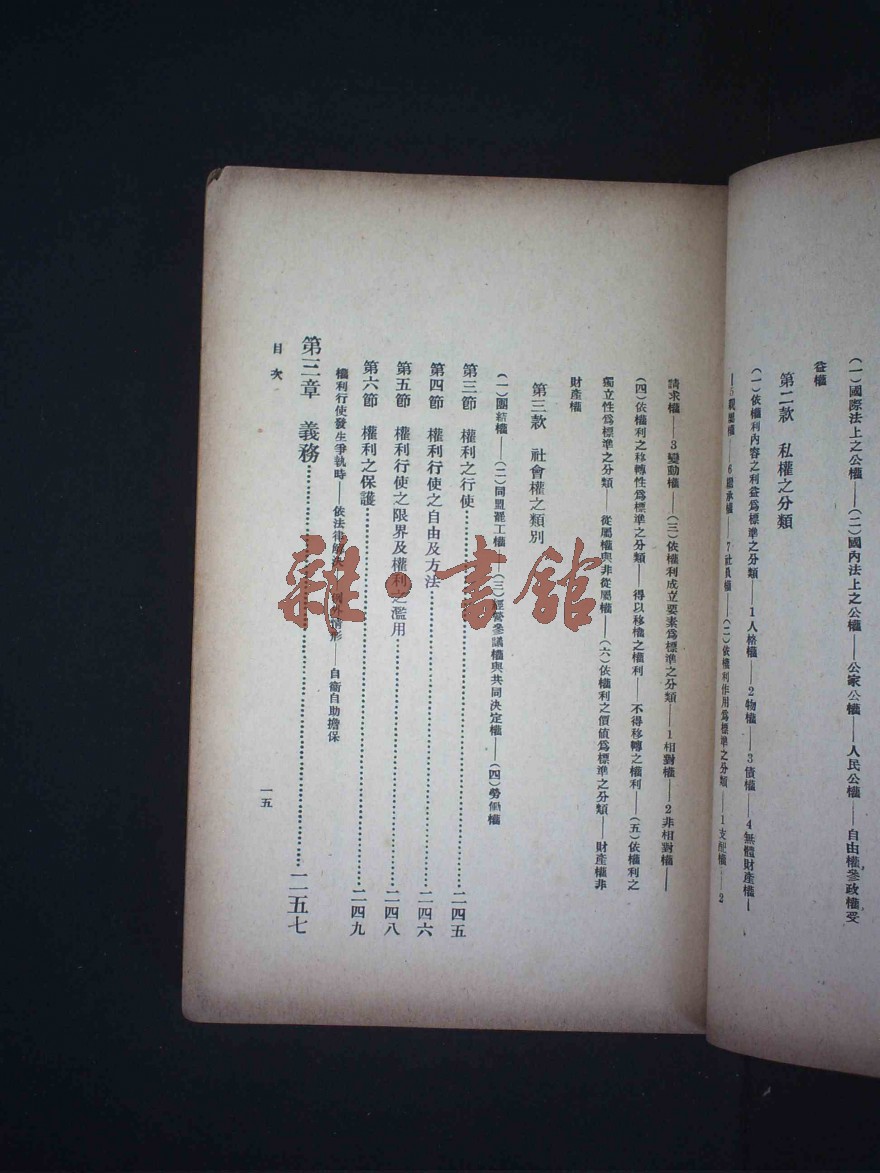 (一)國際法上之公權——(二)國內法上之公權——公家公權——人民公權——自由權參政權受
益權
第二款　私權之分類
(一)依權利內容之利益爲標準之分類——1人格權——2物權——3債權——4無體財產權—
—5親屬權——6繼承權——7社員權——(二)依權利作用爲標準之分類——1支配權——2
請求權——3變動權——(三)依權利成立要素爲標準之分類——1相對權——2非相對權——
(四)依權利之移轉性爲標準之分類——得以移轉之權利——不得移轉之權利——(五)依權利之
獨立性爲標準之分類——從屬權與非從屬權——(六)依權利之價值爲標準之分類——財產權非
財產權
第三款　社會權之類別
(一)團結權——(二)同盟罷工權——(三)經營參議權與共同決定權——(四)勞働權
第三節　權利之行使……二四五
第四節　權利行使之自由及方法……二四六
第五節　權利行使之限界及權利之濫用……二四八
第六節　權利之保護……二四九
權利行使發生爭執時——依法律解決——例外情形——自衞自助擔保
第三章　義務……二五七
目次
一五
雜·書館